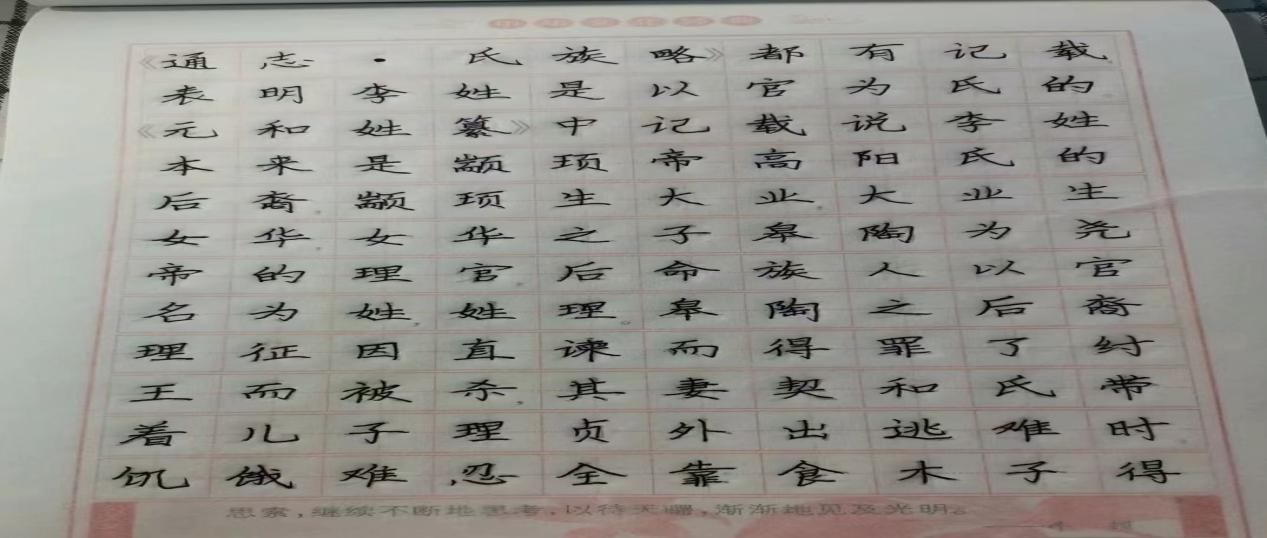 《通志·氏族略》都有记载
表明李姓是以官为氏的
《元和姓纂》中记载说李姓
本来是颛顼帝高阳氏的
后裔。颛顼生大业,大业生
女华,女华之子皋陶为尧
帝的理官后命族人以官
名为姓,姓理。皋陶之后裔
理征因直谏而得罪了纣
王而被杀,其妻契和氏带
着儿子理贞外出逃难时
饥饿难忍,全靠食木子得
思索,继续不断地思考,以待天曙,渐渐地见及光明。